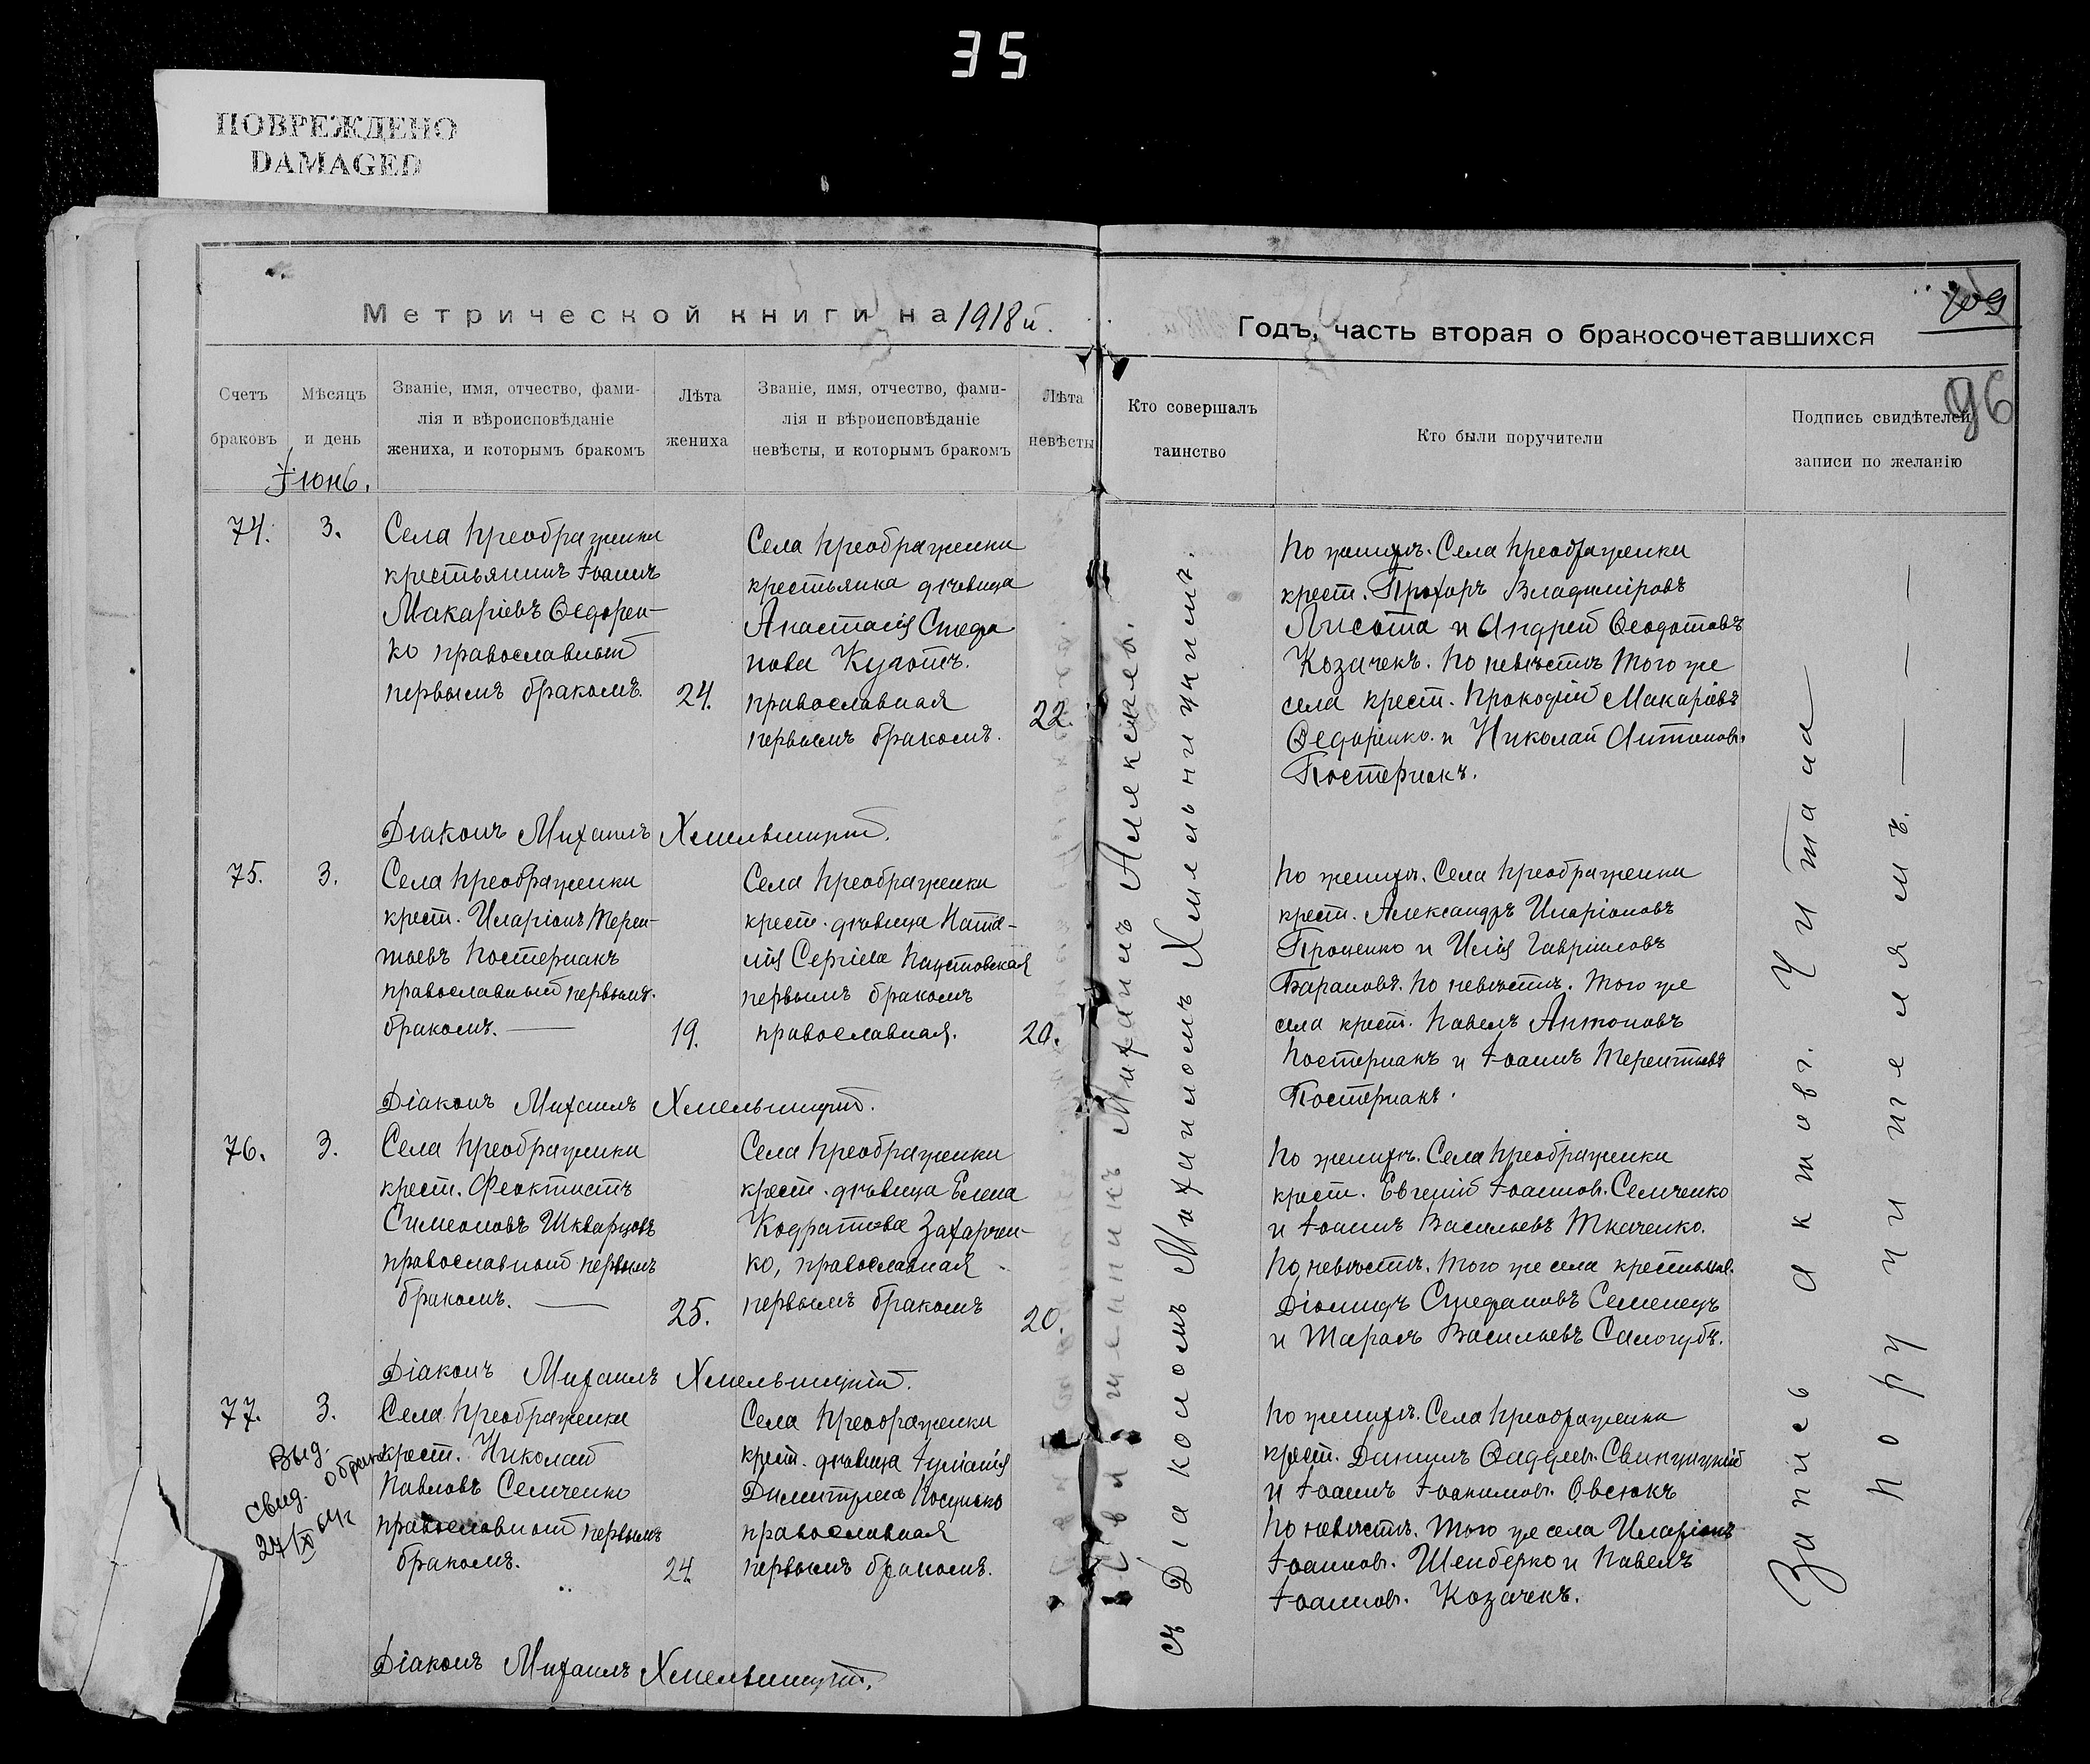 35
ПОВРЕЖДЕНО
DAMAGED
Метрической книги на 1918й.
Годъ, часть вторая о бракосочетавшихся
109
96
Счетъ
браковъ
Мѣсяцъ
и день
Званіе, имя, отчество, фами-
лія и вѣроисповѣданіе
жениха, и которымъ бракомъ
Лѣта
жениха
Званіе, имя, отчество, фами-
лія и вѣроисповѣданіе
невѣсты, и которымъ бракомъ
Лѣта
невѣсты
Кто совершалъ
таинство
Кто были поручители
Подпись свидѣтелей
записи по желанію
Іюнь.
74.
3.
Села Преображенки
крестьянинъ Іоаннъ
Макаріевъ Ѳедорен-
ко православный
первымъ бракомъ.
24.
Села Преображенки
крестьянка дѣвица
Анастасія Стефа
нова
православная
первымъ бракомъ.
22.
По женихѣ. Села Преображенки
крест. Прохоръ Владиміровъ
Лисота и Андрей Ѳеодотовъ
Козачекъ. По невѣстѣ того же
села крест. Прокофій Макаріевъ
Ѳедоренко. и Николай Антоновъ.
Постернакъ.
Діаконъ Михаилъ Хмельницкій.
75.
3.
Села Преображенки
крест. Иларіонъ Терен-
тьевъ Постернакъ
православный первымъ.
бракомъ. —
19.
Села Преображенки
крест. дѣвица Ната-
лія Сергіева Паустовская
первымъ бракомъ
православная.
20.
По женихѣ. Села Преображенки
крест. Александръ Иларіоновъ
Проценко и Илія Гавріиловъ
Барановъ. По невѣстѣ. Того же
села крест. Павелъ Антоновъ
Постернакъ и Іоаннъ Терентьевъ
Постернакъ.
Діаконъ Михаилъ Хмельницкій.
76.
3.
Села Преображенки
крест. Феоктистъ
Симеоновъ Шкварцовъ
православный первымъ
бракомъ. —
25.
Села Преображенки
крест. дѣвица Елена
Кодратова Захарчен-
ко, православная
первымъ бракомъ
20.
По женихѣ. Села Преображенки
крест. Евгеній Іоаннов. Семченко
и Іоаннъ Васильевъ Ткаченко.
По невѣстѣ. Того же села крестьян.
Діомидъ Стефановъ Семенецъ
и Тарасъ Васильевъ Салогубъ.
Діаконъ Михаилъ Хмельницкій.
77.
3.
Села Преображенки
крест. Николай
Павловъ Семченко
православный первымъ
бракомъ.
24.
Села Преображенки
крест. дѣвица Іуліанія
Димитріева
православная
первымъ бракомъ.
По женихѣ. Села Преображенки
крест. Даніилъ Ѳаддеев.
и Іоаннъ Іоакимов. Овсюкъ
По невѣстѣ. Того же села Иларіонъ
Іоаннов. Шенберко и Павелъ
Іоаннов. Козачекъ.
Выд.
свид. о брак
24/IX 64г
Діаконъ Михаилъ Хмельницкій.
Священникъ Михаилъ Алексѣевъ.
съ Діакономъ Михаиломъ Хмельницкимъ.
Запись актовъ. Читана
поручителямъ. — — —